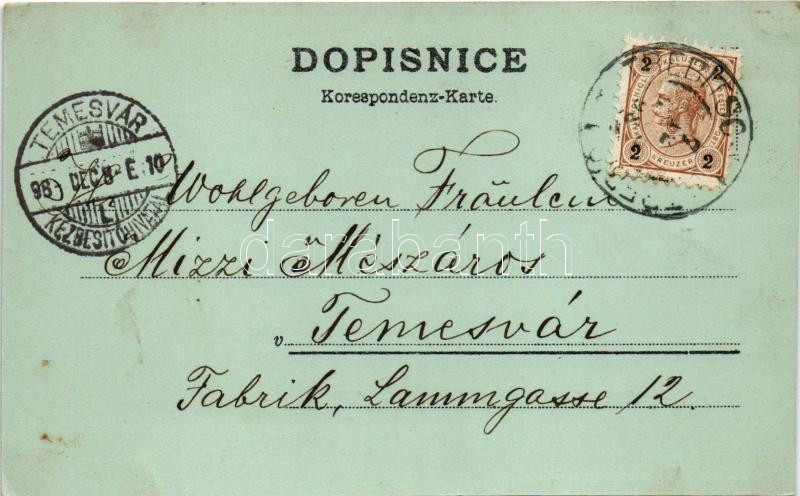 DOPISNICE
Korespondenz-Karte.
2 KREUZER 2
2 KREUZER 2
TEMESVÁR
98 DEC 8 E. 10
KÉZBESÍTŐ HIVATAL
Wohlgeboren Fräulein
Mizzi Mészáros
v Temesvár
Fabrik, Lammgasse 12.
darabanth